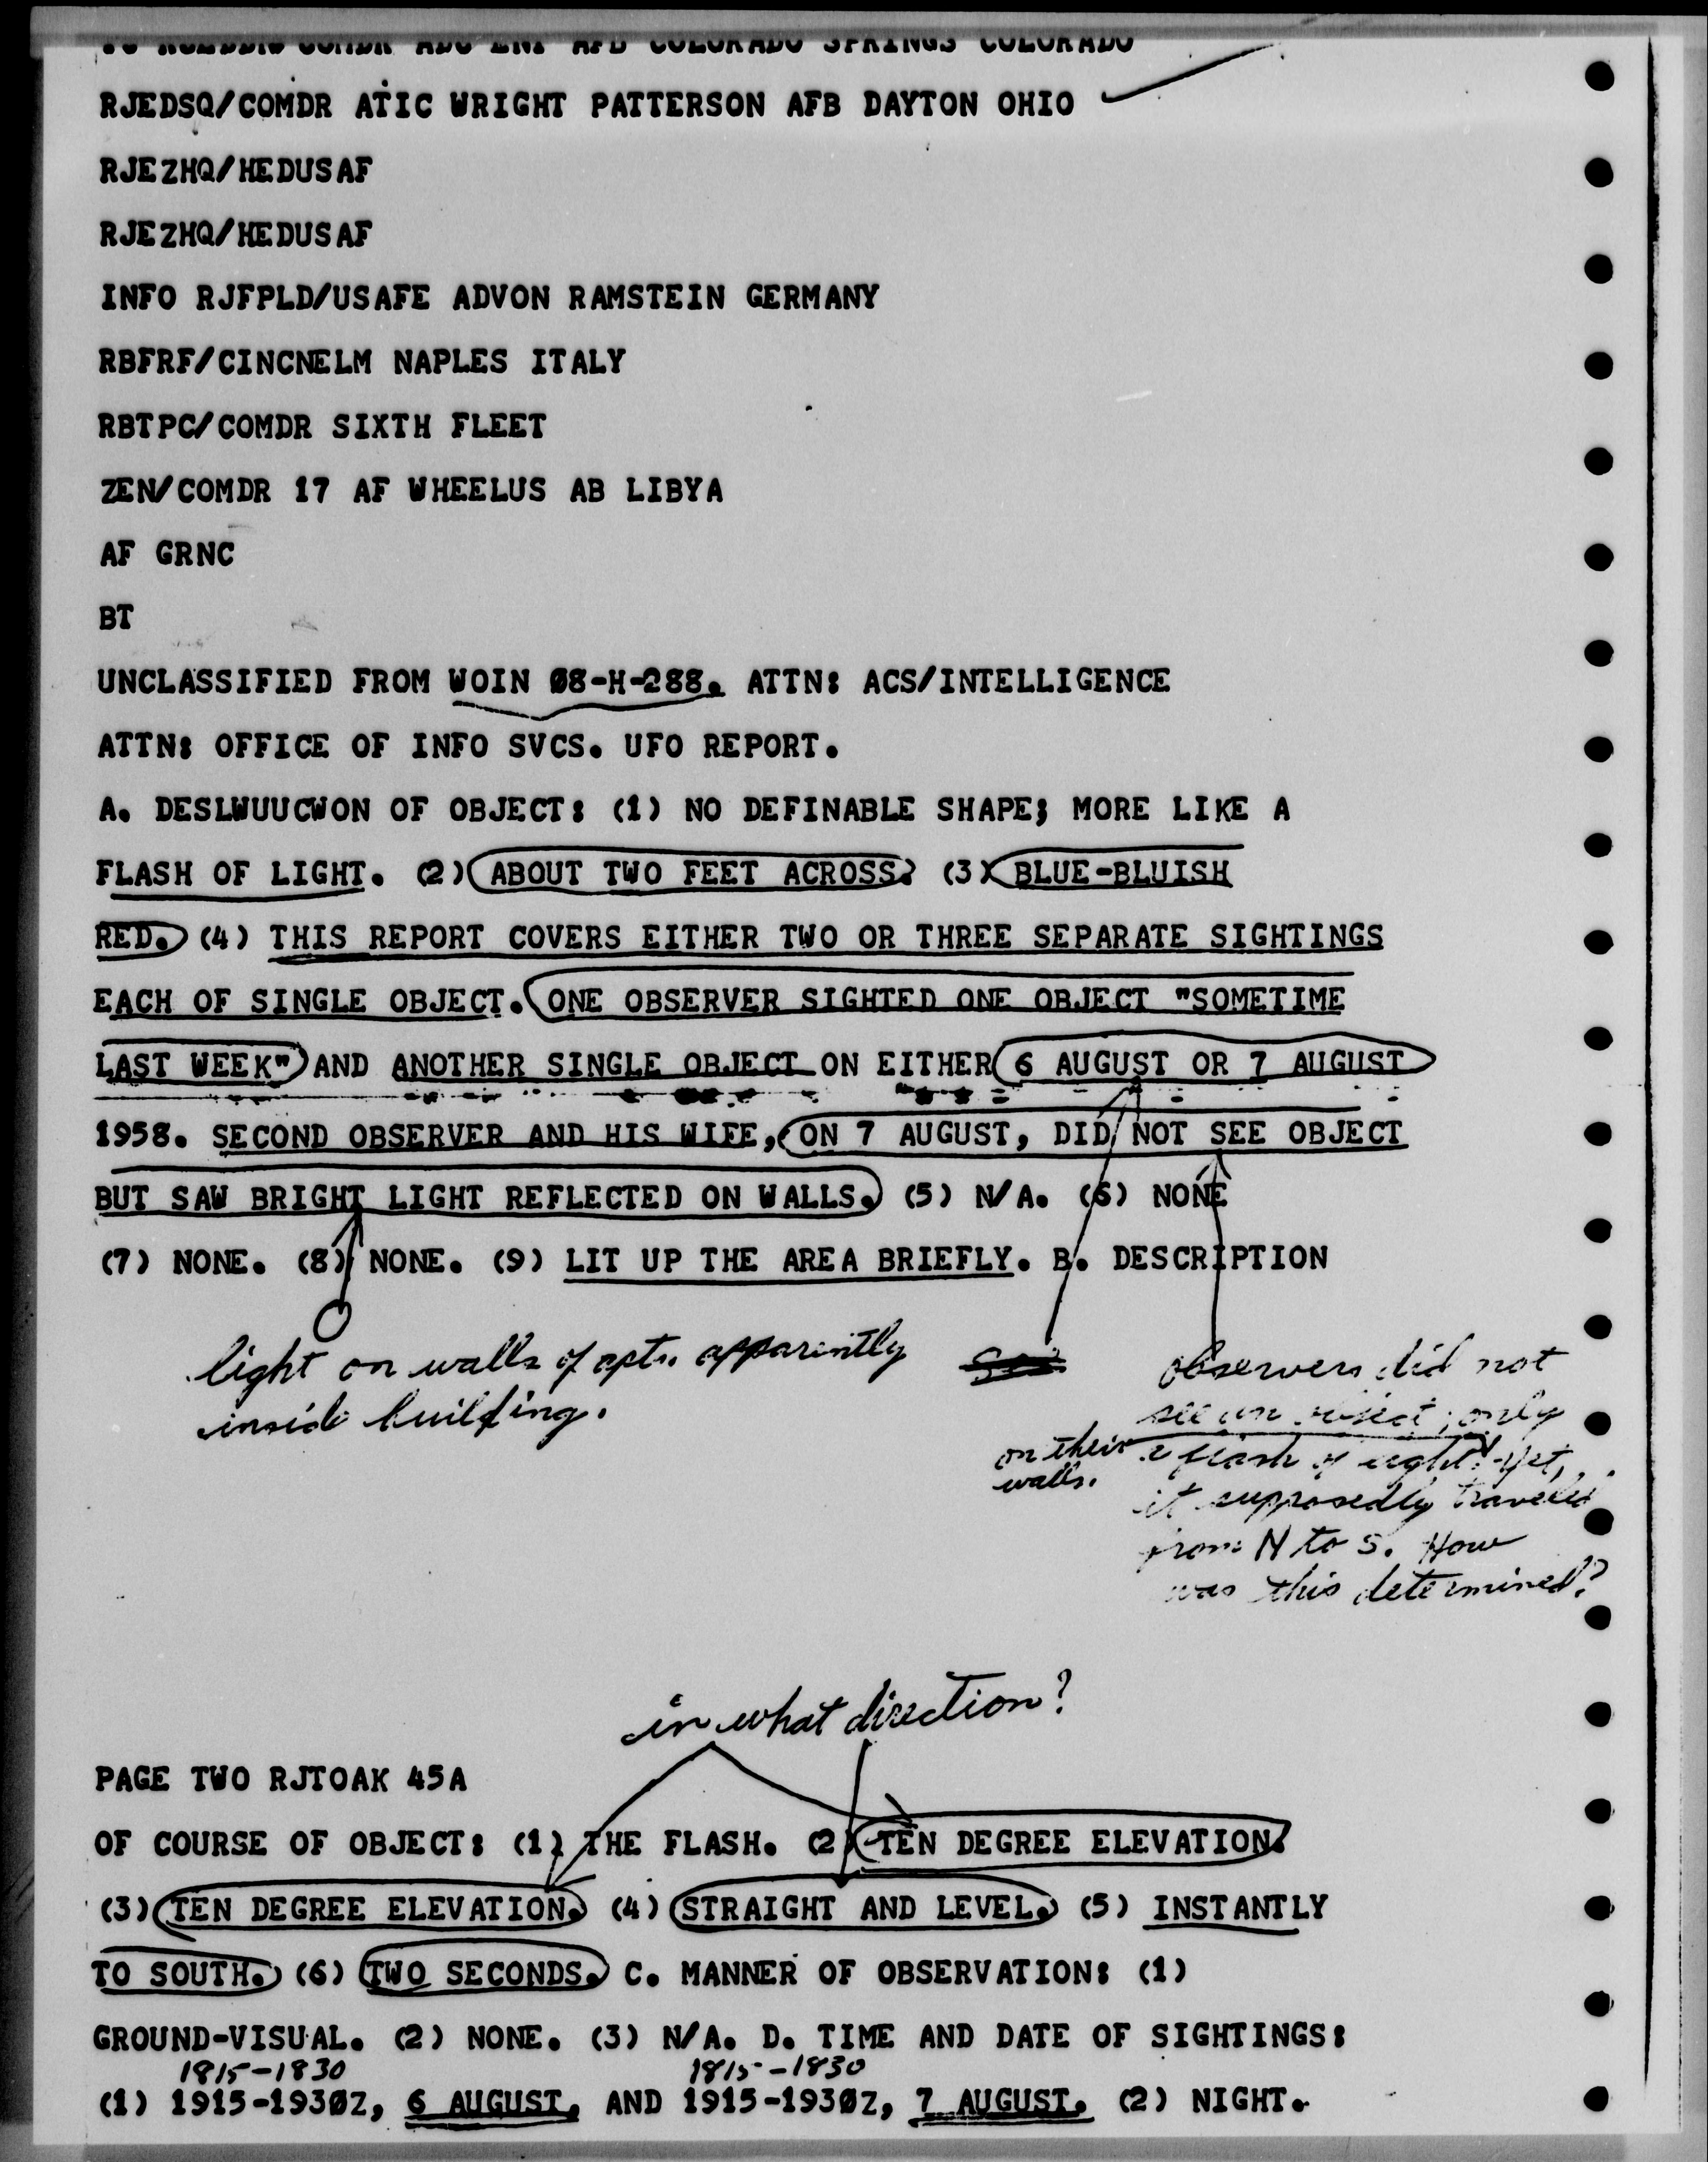 COMDR ADC ENT AFB COLORADO SPRINGS COLORADO
RJEDSQ/COMDR ATIC WRIGHT PATTERSON AFB DAYTON OHIO
RJEZHQ/HEDUSAF
RJEZHQ/HEDUSAF
INFO RJFPLD/USAFE ADVON RAMSTEIN GERMANY
RBFRF/CINCNELM NAPLES ITALY
RBTPC/COMDR SIXTH FLEET
ZEN/COMDR 17 AF WHEELUS AB LIBYA
AF GRNC
BT
UNCLASSIFIED FROM WOIN Ø8-H-288. ATTN: ACS/INTELLIGENCE
ATTN: OFFICE OF INFO SVCS. UFO REPORT.
A. DESLWUUCWON OF OBJECT: (1) NO DEFINABLE SHAPE; MORE LIKE A
FLASH OF LIGHT. (2) ABOUT TWO FEET ACROSS? (3) BLUE-BLUISH
RED. (4) THIS REPORT COVERS EITHER TWO OR THREE SEPARATE SIGHTINGS
EACH OF SINGLE OBJECT. ONE OBSERVER SIGHTED ONE OBJECT "SOMETIME
LAST WEEK" AND ANOTHER SINGLE OBJECT ON EITHER 6 AUGUST OR 7 AUGUST
1958. SECOND OBSERVER AND HIS WIFE, ON 7 AUGUST, DID NOT SEE OBJECT
BUT SAW BRIGHT LIGHT REFLECTED ON WALLS. (5) N/A. (6) NONE
(7) NONE. (8) NONE. (9) LIT UP THE AREA BRIEFLY. B. DESCRIPTION
light on walls of apts. apparently
inside building.
observers did not
see an object; only
a flash of light on their walls. Yet,
it supposedly traveled
from N to S. How
was this determined?
in what direction?
PAGE TWO RJTOAK 45A
OF COURSE OF OBJECT: (1) THE FLASH. (2) TEN DEGREE ELEVATION.
(3) TEN DEGREE ELEVATION. (4) STRAIGHT AND LEVEL. (5) INSTANTLY
TO SOUTH. (6) TWO SECONDS. C. MANNER OF OBSERVATION: (1)
GROUND-VISUAL. (2) NONE. (3) N/A. D. TIME AND DATE OF SIGHTINGS:
1815-1830 1815-1830
(1) 1915-193ØZ, 6 AUGUST, AND 1915-193ØZ, 7 AUGUST. (2) NIGHT.